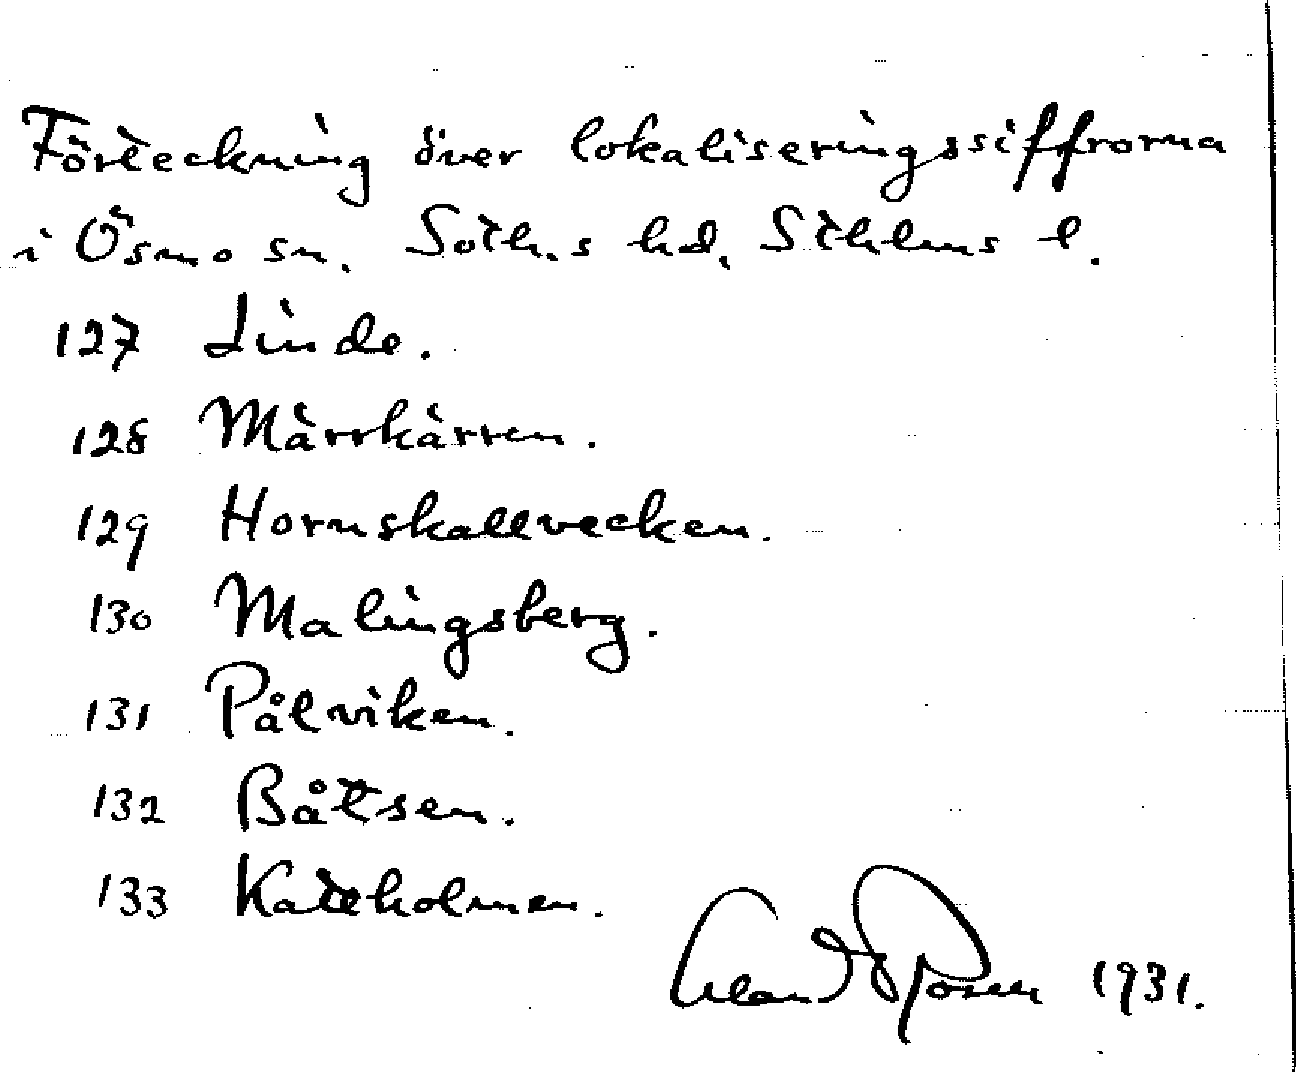 Förteckning över lokaliseringssiffrorna
i Ösmo sn. Soth.s hd, Sthlms l.
127 Linde.
128 Märrkärren.
129 Hornskallvecken.
130 Malingsberg.
131 Pålviken.
132 Båtsen.
133 Kateholmen.
1931.